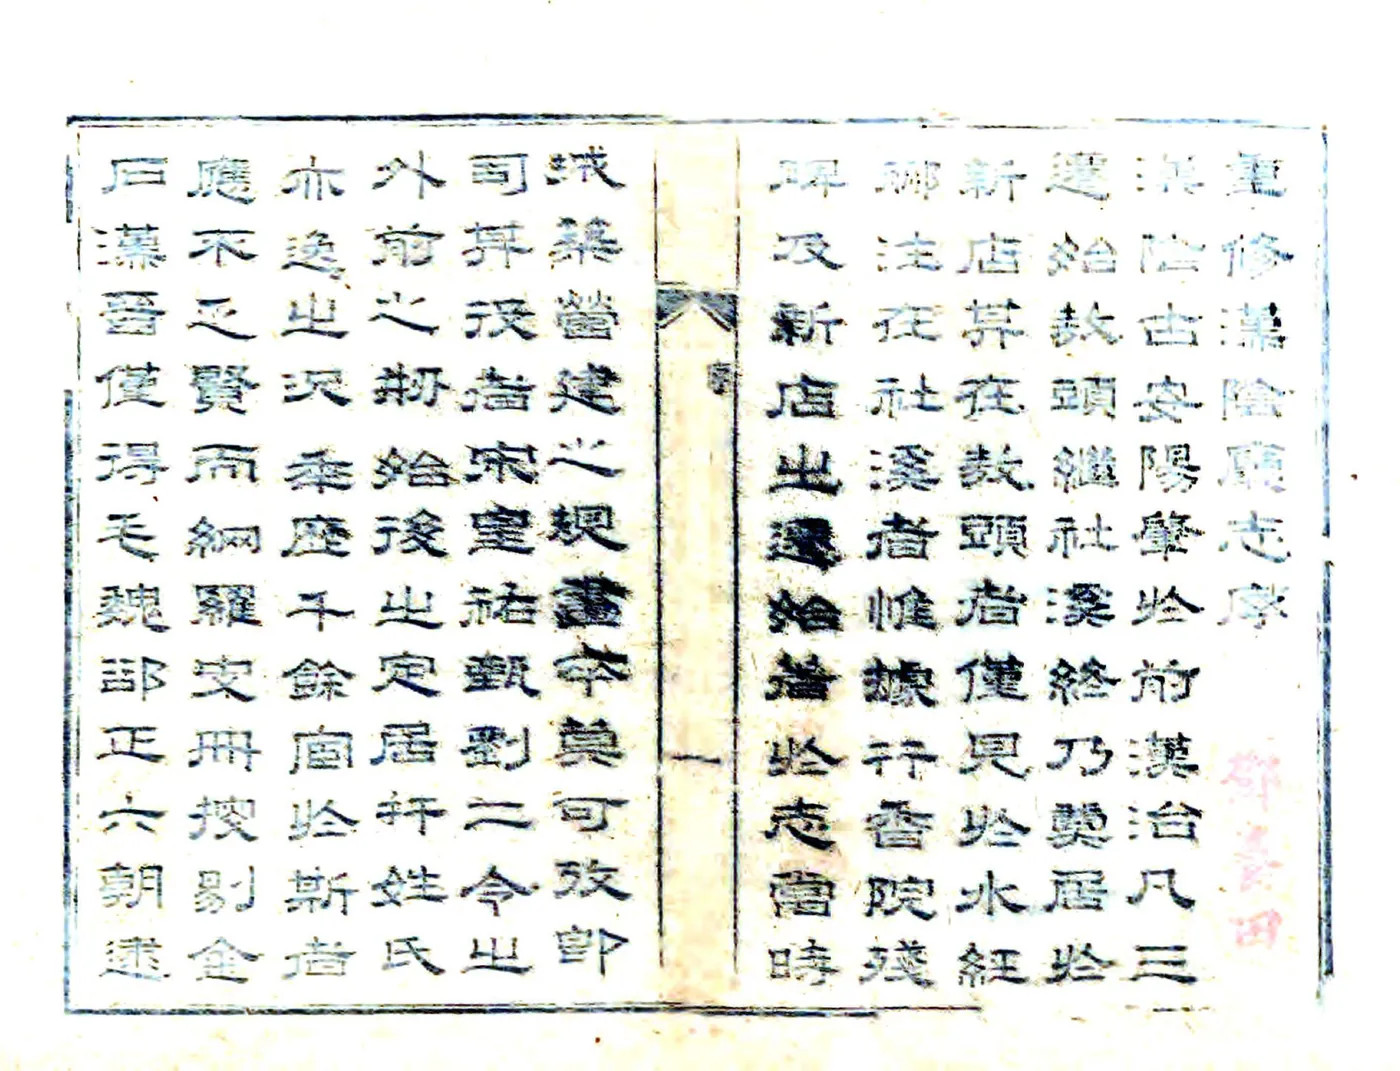 重修漢陰廳志序
漢陰古安陽肇於前漢治凡三
遷始敖頭繼社溪終乃奠居於
新店其在敖頭者僅見於水經
酈注在社溪者惟據行香院殘
碑及新店之遷始著於志當時
序
一
城築營建之規畫卒莫可攷即
司其役者宋皇祐觀劉二令之
外前之剏始後之定居并姓氏
亦逸之况年歷千餘宦於斯者
應不乏賢而網羅史冊搜剔金
石漢晉僅得毛魏郤正六朝逮